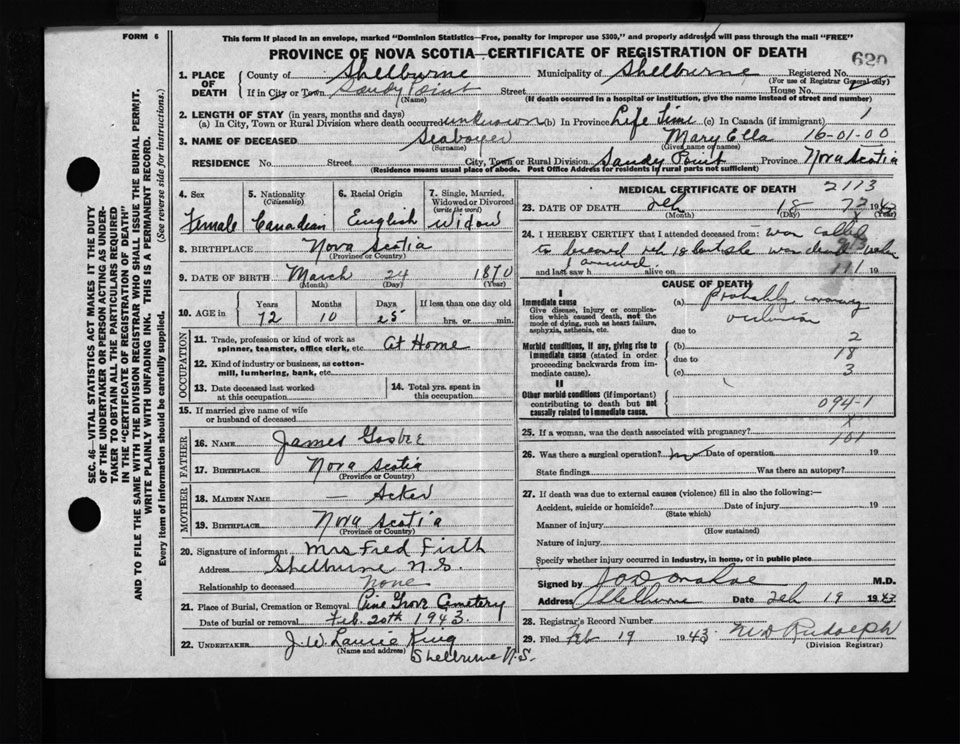 FORM 6
This form if placed in an envelope, marked "Dominion Statistics—Free, penalty for improper use $300," and properly addressed will pass through the mail "FREE"
PROVINCE OF NOVA SCOTIA—CERTIFICATE OF REGISTRATION OF DEATH
620
1. PLACE OF DEATH
County of Shelburne Municipality of Shelburne Registered No.
(For use of Registrar General only)
If in City or Town Sandy Point Street House No.
(Name) (If death occurred in a hospital or institution, give the name instead of street and number)
2. LENGTH OF STAY (in years, months and days)
(a) In City, Town or Rural Division where death occurred unknown (b) In Province Life Time (c) In Canada (if immigrant)
3. NAME OF DECEASED Seaboyer Mary Ella 16-01-00
(Surname) (Given name or names)
RESIDENCE No. Street City, Town or Rural Division Sandy Point Province Nova Scotia
(Residence means usual place of abode. Post Office Address for residents in rural parts not sufficient)
4. Sex
Female
5. Nationality
(Citizenship)
Canadian
6. Racial Origin
English
7. Single, Married, Widowed or Divorced
(write the word)
Widow
8. BIRTHPLACE Nova Scotia
(Province or Country)
9. DATE OF BIRTH March 24 1870
(Month) (Day) (Year)
10. AGE in
Years Months Days If less than one day old
72 10 25 hrs. or min.
OCCUPATION
11. Trade, profession or kind of work as
spinner, teamster, office clerk, etc At Home
12. Kind of industry or business, as cotton-
mill, lumbering, bank, etc
13. Date deceased last worked
at this occupation
14. Total yrs. spent in
this occupation
15. If married give name of wife
or husband of deceased
FATHER
16. NAME James Gosbee
17. BIRTHPLACE Nova Scotia
(Province or Country)
MOTHER
18. MAIDEN NAME — Acker
19. BIRTHPLACE Nova Scotia
(Province or Country)
20. Signature of informant Mrs Fred Firth
Address Shelburne N.S.
Relationship to deceased None
21. Place of Burial, Cremation or Removal Pine Grove Cemetery
Date of burial or removal Feb. 20th 1943.
22. UNDERTAKER J. W. Laurie King
(Name and address) Shelburne N.S.
MEDICAL CERTIFICATE OF DEATH 2113
23. DATE OF DEATH Feb 18 1943
(Month) (Day) (Year)
24. I HEREBY CERTIFY that I attended deceased from: was called
to deceased Feb 18 but she was dead when
I arrived.
and last saw h alive on 19
111
CAUSE OF DEATH
I
Immediate cause
Give disease, injury or complica-
tion which caused death, not the
mode of dying, such as heart failure,
asphyxia, asthenia, etc.
(a) Probably coronary
occlusion
due to
Morbid conditions, if any, giving rise to
immediate cause (stated in order
proceeding backwards from im-
mediate cause).
(b) 2
due to 18
(c) 3
II
Other morbid conditions (if important)
contributing to death but not
causally related to immediate cause.
094-1
25. If a woman, was the death associated with pregnancy?
X
101
26. Was there a surgical operation? no Date of operation 19
State findings Was there an autopsy?
27. If death was due to external causes (violence) fill in also the following:—
Accident, suicide or homicide? Date of injury 19
(State which)
Manner of injury
(How sustained)
Nature of injury
Specify whether injury occurred in industry, in home, or in public place
Signed by M.D.
Address Shelburne Date Feb 19 1943
28. Registrar's Record Number
29. Filed Feb 19 1943 Rudolph
(Division Registrar)
SEC. 46—VITAL STATISTICS ACT MAKES IT THE DUTY
OF THE UNDERTAKER OR PERSON ACTING AS UNDER-
TAKER TO OBTAIN ALL THE PARTICULARS REQUIRED
IN THE "CERTIFICATE OF REGISTRATION OF DEATH"
AND TO FILE THE SAME WITH THE DIVISION REGISTRAR WHO SHALL ISSUE THE BURIAL PERMIT.
WRITE PLAINLY WITH UNFADING INK. THIS IS A PERMANENT RECORD.
Every item of information should be carefully supplied. (See reverse side for instructions.)